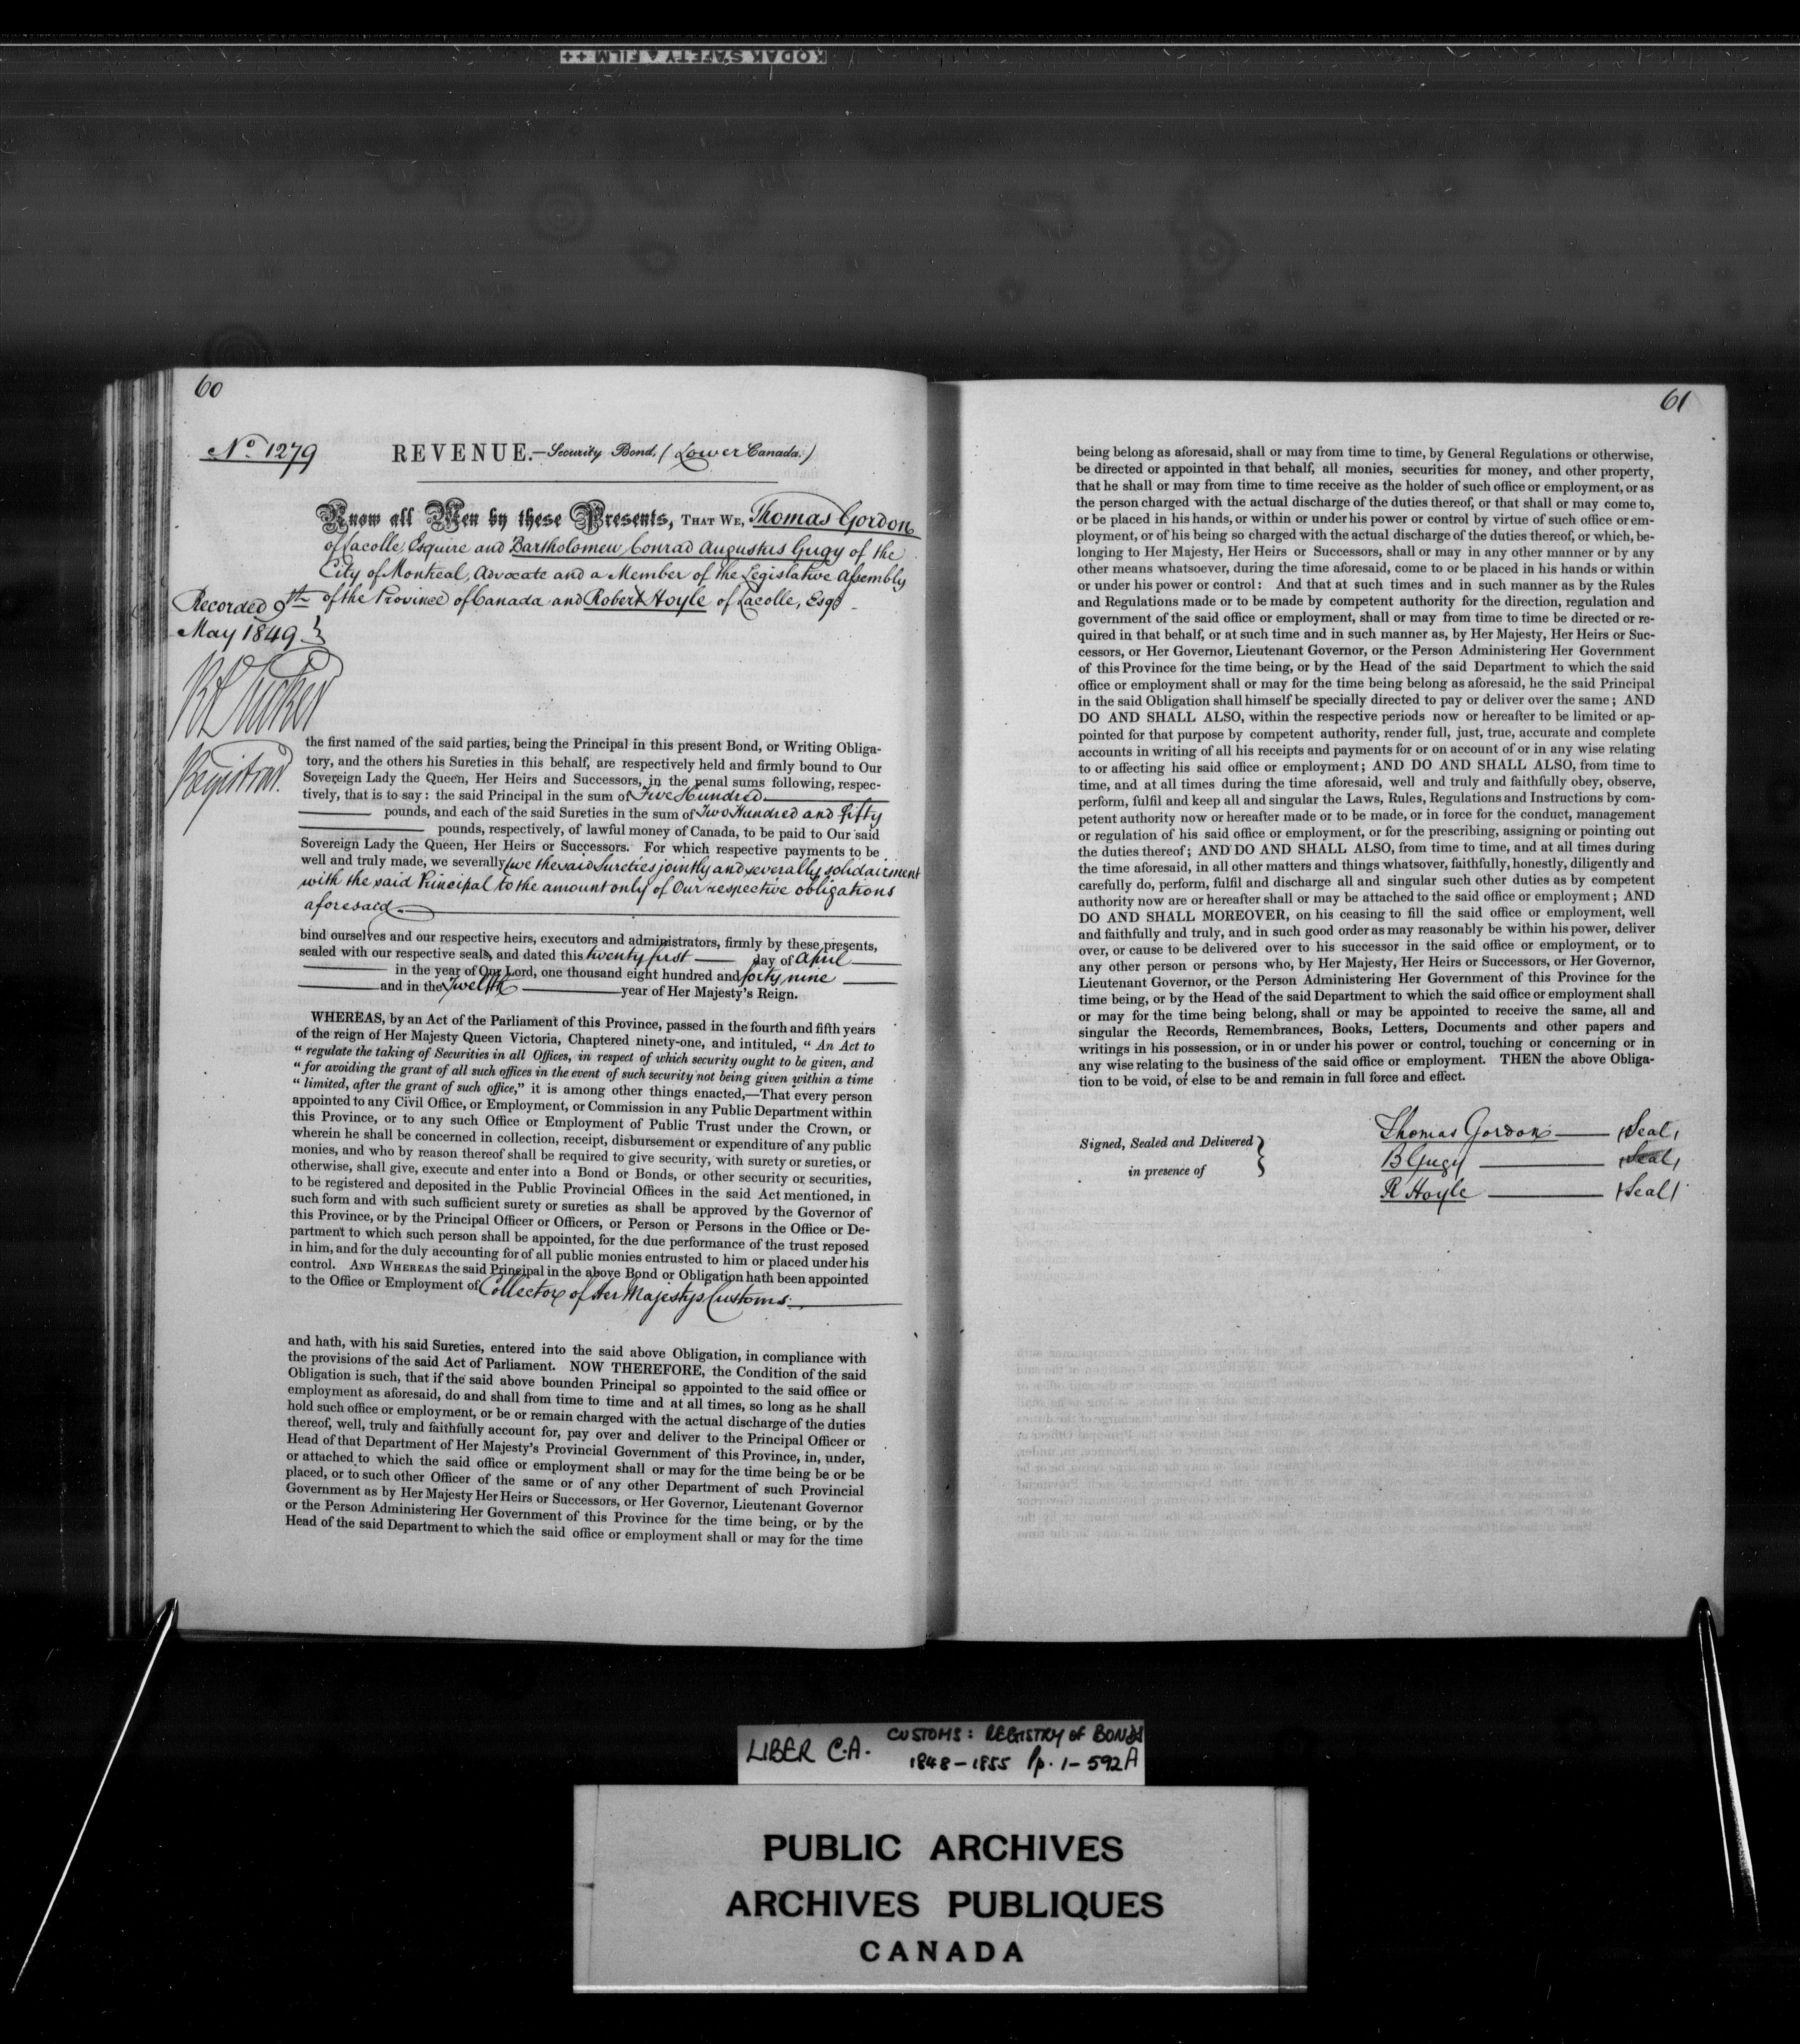 KODAK SAFETY ▲ FILM ++
60
No. 1279
REVENUE.—Security Bond, (Lower Canada.)
Know all Men by these Presents, THAT WE, Thomas Gordon
of Lacolle, Esquire and Bartholomew Conrad Augustus Gugy of the
City of Montreal, Advocate and a Member of the Legislative Assembly
of the Province of Canada and Robert Hoyle of Lacolle, Esqr.
Recorded 9th
May 1849 }
Registrar.
the first named of the said parties, being the Principal in this present Bond, or Writing Obliga-
tory, and the others his Sureties in this behalf, are respectively held and firmly bound to Our
Sovereign Lady the Queen, Her Heirs and Successors, in the penal sums following, respec-
tively, that is to say: the said Principal in the sum of Five Hundred
pounds, and each of the said Sureties in the sum of Two Hundred and fifty
pounds, respectively, of lawful money of Canada, to be paid to Our said
Sovereign Lady the Queen, Her Heirs or Successors. For which respective payments to be
well and truly made, we severally (we the said Sureties jointly and severally solidairment
with the said Principal to the amount only of Our respective obligations
aforesaid
bind ourselves and our respective heirs, executors and administrators, firmly by these presents,
sealed with our respective seals, and dated this twenty first day of April
in the year of Our Lord, one thousand eight hundred and forty nine
and in the Twelfth year of Her Majesty's Reign.
WHEREAS, by an Act of the Parliament of this Province, passed in the fourth and fifth years
of the reign of Her Majesty Queen Victoria, Chaptered ninety-one, and intituled, " An Act to
" regulate the taking of Securities in all Offices, in respect of which security ought to be given, and
" for avoiding the grant of all such offices in the event of such security not being given within a time
" limited, after the grant of such office," it is among other things enacted,—That every person
appointed to any Civil Office, or Employment, or Commission in any Public Department within
this Province, or to any such Office or Employment of Public Trust under the Crown, or
wherein he shall be concerned in collection, receipt, disbursement or expenditure of any public
monies, and who by reason thereof shall be required to give security, with surety or sureties, or
otherwise, shall give, execute and enter into a Bond or Bonds, or other security or securities,
to be registered and deposited in the Public Provincial Offices in the said Act mentioned, in
such form and with such sufficient surety or sureties as shall be approved by the Governor of
this Province, or by the Principal Officer or Officers, or Person or Persons in the Office or De-
partment to which such person shall be appointed, for the due performance of the trust reposed
in him, and for the duly accounting for of all public monies entrusted to him or placed under his
control. AND WHEREAS the said Principal in the above Bond or Obligation hath been appointed
to the Office or Employment of Collector of Her Majesty's Customs
and hath, with his said Sureties, entered into the said above Obligation, in compliance with
the provisions of the said Act of Parliament. NOW THEREFORE, the Condition of the said
Obligation is such, that if the said above bounden Principal so appointed to the said office or
employment as aforesaid, do and shall from time to time and at all times, so long as he shall
hold such office or employment, or be or remain charged with the actual discharge of the duties
thereof, well, truly and faithfully account for, pay over and deliver to the Principal Officer or
Head of that Department of Her Majesty's Provincial Government of this Province, in, under,
or attached to which the said office or employment shall or may for the time being be or be
placed, or to such other Officer of the same or of any other Department of such Provincial
Government as by Her Majesty Her Heirs or Successors, or Her Governor, Lieutenant Governor
or the Person Administering Her Government of this Province for the time being, or by the
Head of the said Department to which the said office or employment shall or may for the time
61
being belong as aforesaid, shall or may from time to time, by General Regulations or otherwise,
be directed or appointed in that behalf, all monies, securities for money, and other property,
that he shall or may from time to time receive as the holder of such office or employment, or as
the person charged with the actual discharge of the duties thereof, or that shall or may come to,
or be placed in his hands, or within or under his power or control by virtue of such office or em-
ployment, or of his being so charged with the actual discharge of the duties thereof, or which, be-
longing to Her Majesty, Her Heirs or Successors, shall or may in any other manner or by any
other means whatsoever, during the time aforesaid, come to or be placed in his hands or within
or under his power or control: And that at such times and in such manner as by the Rules
and Regulations made or to be made by competent authority for the direction, regulation and
government of the said office or employment, shall or may from time to time be directed or re-
quired in that behalf, or at such time and in such manner as, by Her Majesty, Her Heirs or Suc-
cessors, or Her Governor, Lieutenant Governor, or the Person Administering Her Government
of this Province for the time being, or by the Head of the said Department to which the said
office or employment shall or may for the time being belong as aforesaid, he the said Principal
in the said Obligation shall himself be specially directed to pay or deliver over the same; AND
DO AND SHALL ALSO, within the respective periods now or hereafter to be limited or ap-
pointed for that purpose by competent authority, render full, just, true, accurate and complete
accounts in writing of all his receipts and payments for or on account of or in any wise relating
to or affecting his said office or employment; AND DO AND SHALL ALSO, from time to
time, and at all times during the time aforesaid, well and truly and faithfully obey, observe,
perform, fulfil and keep all and singular the Laws, Rules, Regulations and Instructions by com-
petent authority now or hereafter made or to be made, or in force for the conduct, management
or regulation of his said office or employment, or for the prescribing, assigning or pointing out
the duties thereof; AND DO AND SHALL ALSO, from time to time, and at all times during
the time aforesaid, in all other matters and things whatsover, faithfully, honestly, diligently and
carefully do, perform, fulfil and discharge all and singular such other duties as by competent
authority now are or hereafter shall or may be attached to the said office or employment; AND
DO AND SHALL MOREOVER, on his ceasing to fill the said office or employment, well
and faithfully and truly, and in such good order as may reasonably be within his power, deliver
over, or cause to be delivered over to his successor in the said office or employment, or to
any other person or persons who, by Her Majesty, Her Heirs or Successors, or Her Governor,
Lieutenant Governor, or the Person Administering Her Government of this Province for the
time being, or by the Head of the said Department to which the said office or employment shall
or may for the time being belong, shall or may be appointed to receive the same, all and
singular the Records, Remembrances, Books, Letters, Documents and other papers and
writings in his possession, or in or under his power or control, touching or concerning or in
any wise relating to the business of the said office or employment. THEN the above Obliga-
tion to be void, or else to be and remain in full force and effect.
Signed, Sealed and Delivered }
in presence of
Thomas Gordon (Seal)
B Gugy (Seal)
R Hoyle (Seal)
LIBER C.A. CUSTOMS: REGISTRY OF BONDS
1848-1855 Pp. 1-592A
PUBLIC ARCHIVES
ARCHIVES PUBLIQUES
CANADA